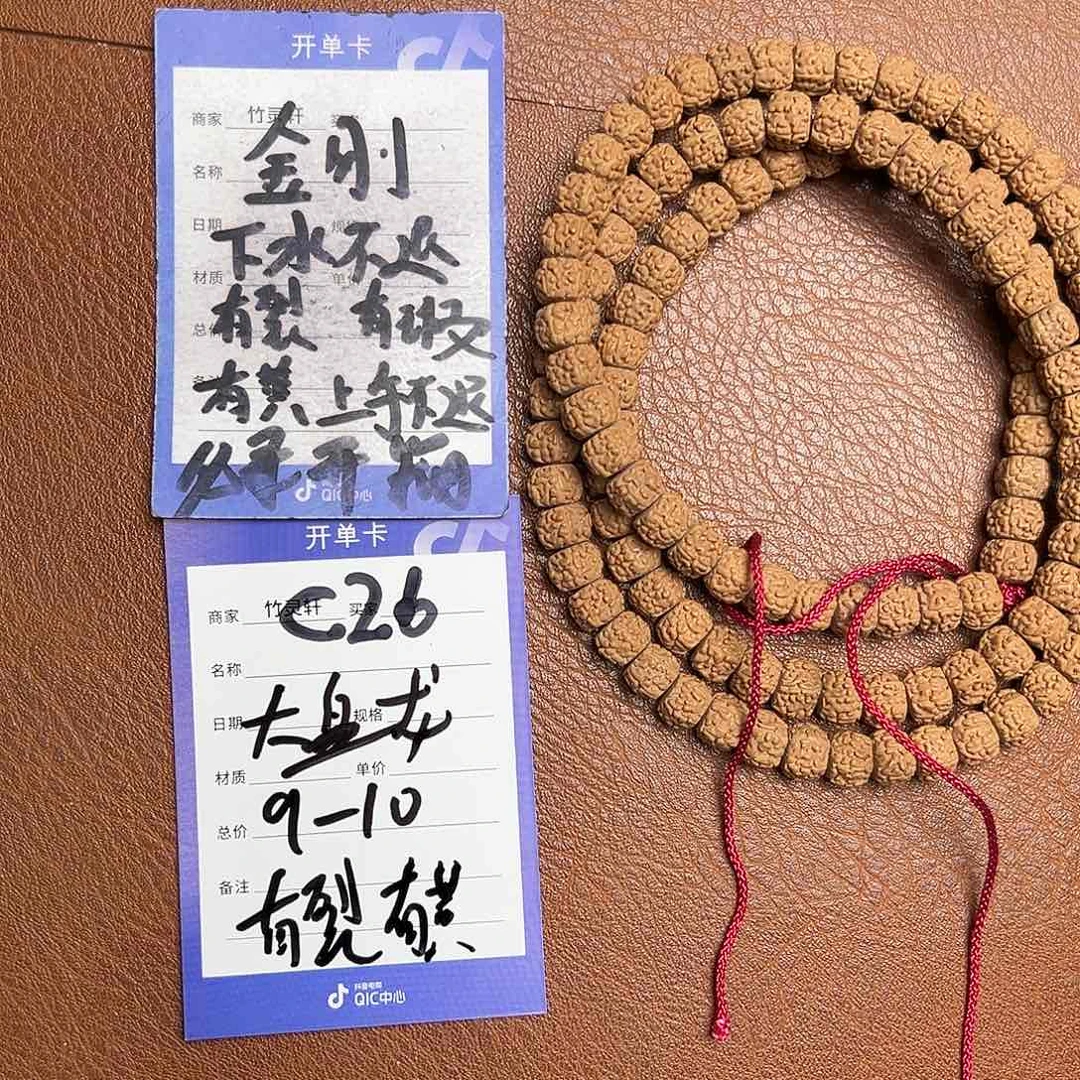 开单卡
商家 竹灵轩
名称 金刚
日期
下水不退
材质 单价
有裂 有
总价
有黄 上手不退
抖音电商
QIC中心
开单卡
商家 竹灵轩 买家
C26
名称
大盘龙
日期 规格
材质 单价
9-10
总价
备注
有裂 有黄
抖音电商
QIC中心